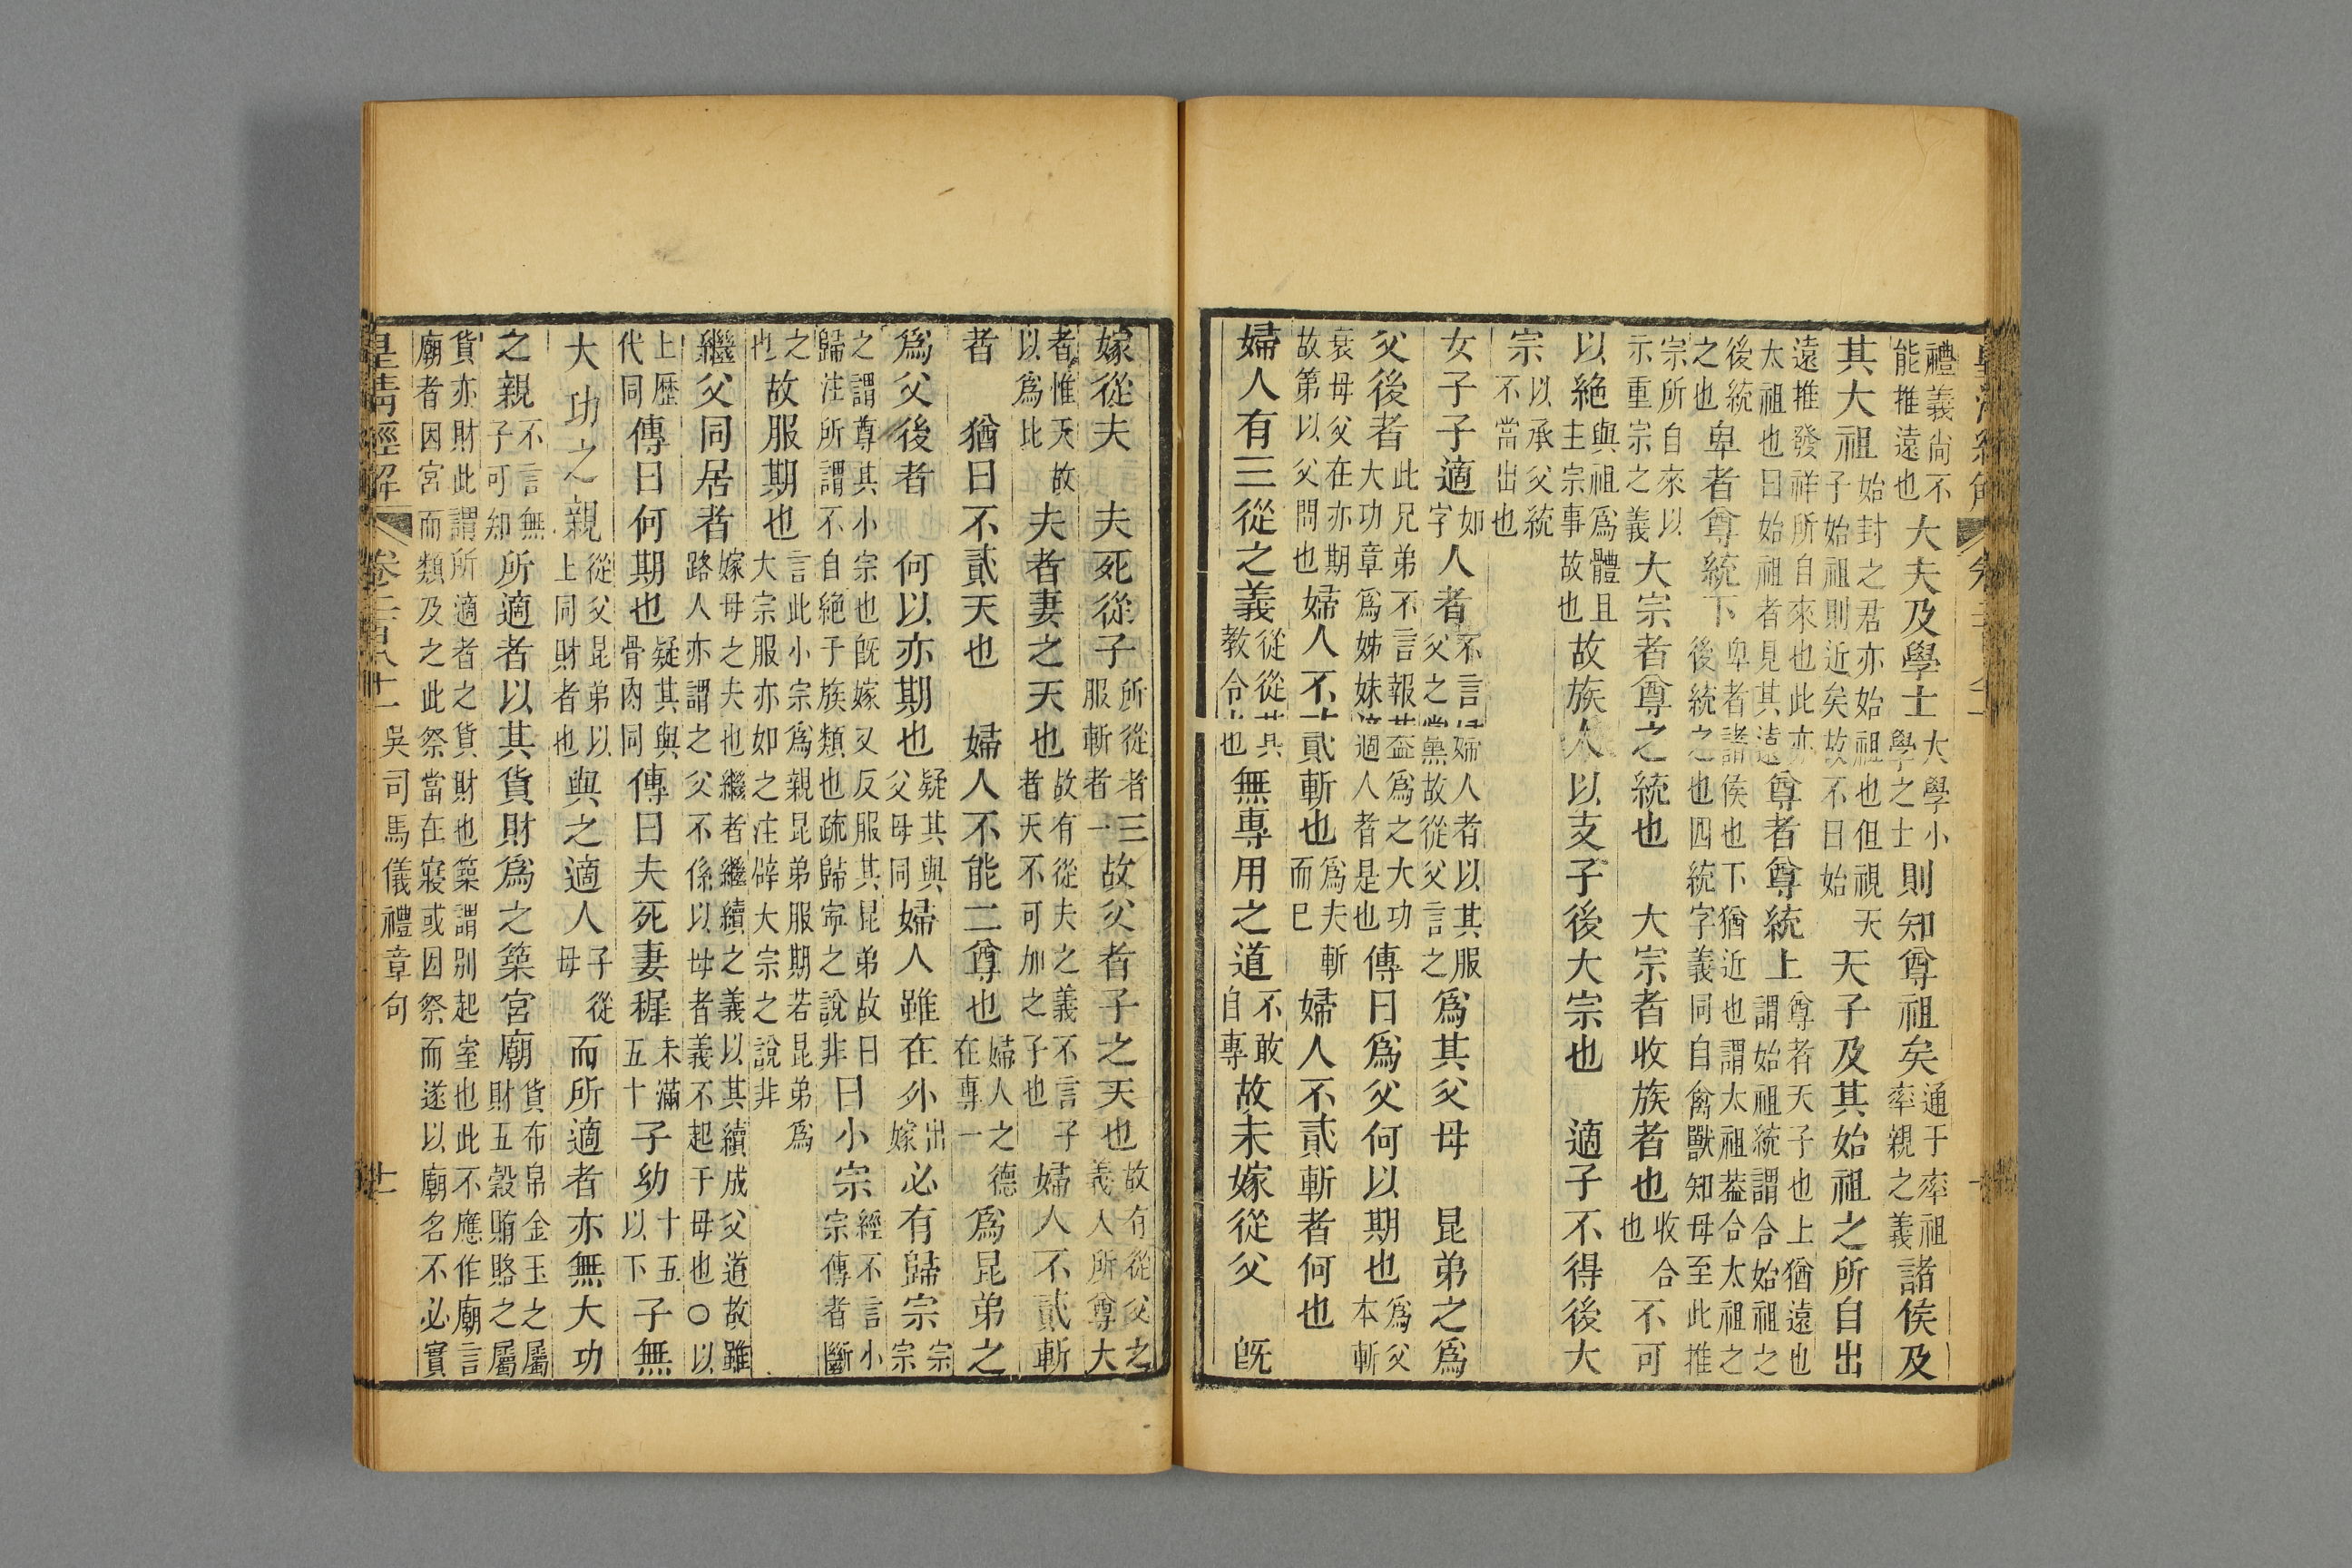 禮義尚不能推遠也大夫及學士大學小學之士則知尊祖矣通于率祖率親之義諸侯及
其大祖始封之君亦始祖也但視天子始祖則近矣故不曰始天子及其始祖之所自出
遠推發祥所自來也此亦太祖也曰始祖者見其遠尊者尊統上尊者天子也上猶遠也謂始祖統謂合始祖之
後統之也卑者尊統下卑者諸侯也下猶近也謂太祖葢合太祖之後統之也四統字義同自禽獸知母至此推
宗所自來以示重宗之義大宗者尊之統也 大宗者收族者也收合也不可
以絕與祖爲體且主宗事故也故族人以支子後大宗也 適子不得後大
宗以承父統不當出也
女子子適如字人者不言婦人者以其服父之黨故從父言之爲其父母 昆弟之爲
父後者此兄弟不言報葢爲之大功大功章爲姊妹適人者是也傳曰爲父何以期也爲父本斬
衰母父在亦期故第以父問也婦人不貳斬也爲夫斬而已婦人不貳斬者何也
婦人有三從之義從從其教令也無專用之道不敢自專故未嫁從父 旣
嫁從夫 夫死從子所從者三服斬者一故父者子之天也故有從父之義人所尊大
者惟天故以爲比夫者妻之天也故有從夫之義不言子者天不可加之子也婦人不貳斬
者 猶曰不貳天也 婦人不能二尊也婦人之德在專一爲昆弟之
爲父後者 何以亦期也疑其與父母同婦人雖在外出嫁必有歸宗宗宗
之謂尊其小宗也旣嫁又反服其昆弟故曰歸注所謂不自絕于族類也疏歸寧之說非曰小宗經不言小宗傳者斷
之也故服期也言此小宗爲親昆弟服期若昆弟爲大宗服亦如之注辟大宗之說非
繼父同居者嫁母之夫也繼者繼續之義以其續成父道故雖路人亦謂之父不係以母者義不起于母也○以
上歷代同傳曰何期也疑其與骨肉同傳曰夫死妻穉未滿五十子幼十五以下子無
大功之親從父昆弟以上同財者也與之適人子從母而所適者亦無大功
之親不言無子可知所適者以其貨財爲之築宮廟貨布帛金玉之屬財五穀賄賂之屬
貨亦財此謂所適者之貨財也築謂別起室也此不應作廟言廟者因宮而類及之此祭當在寢或因祭而遂以廟名不必實
皇清經解 卷二百八十一 吳司馬儀禮章句 十一